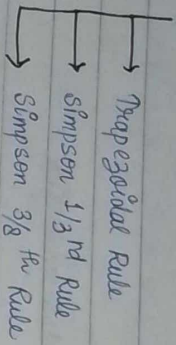 Trapezoidal Rule
Simpson 1/3 rd Rule
Simpson 3/8 th Rule